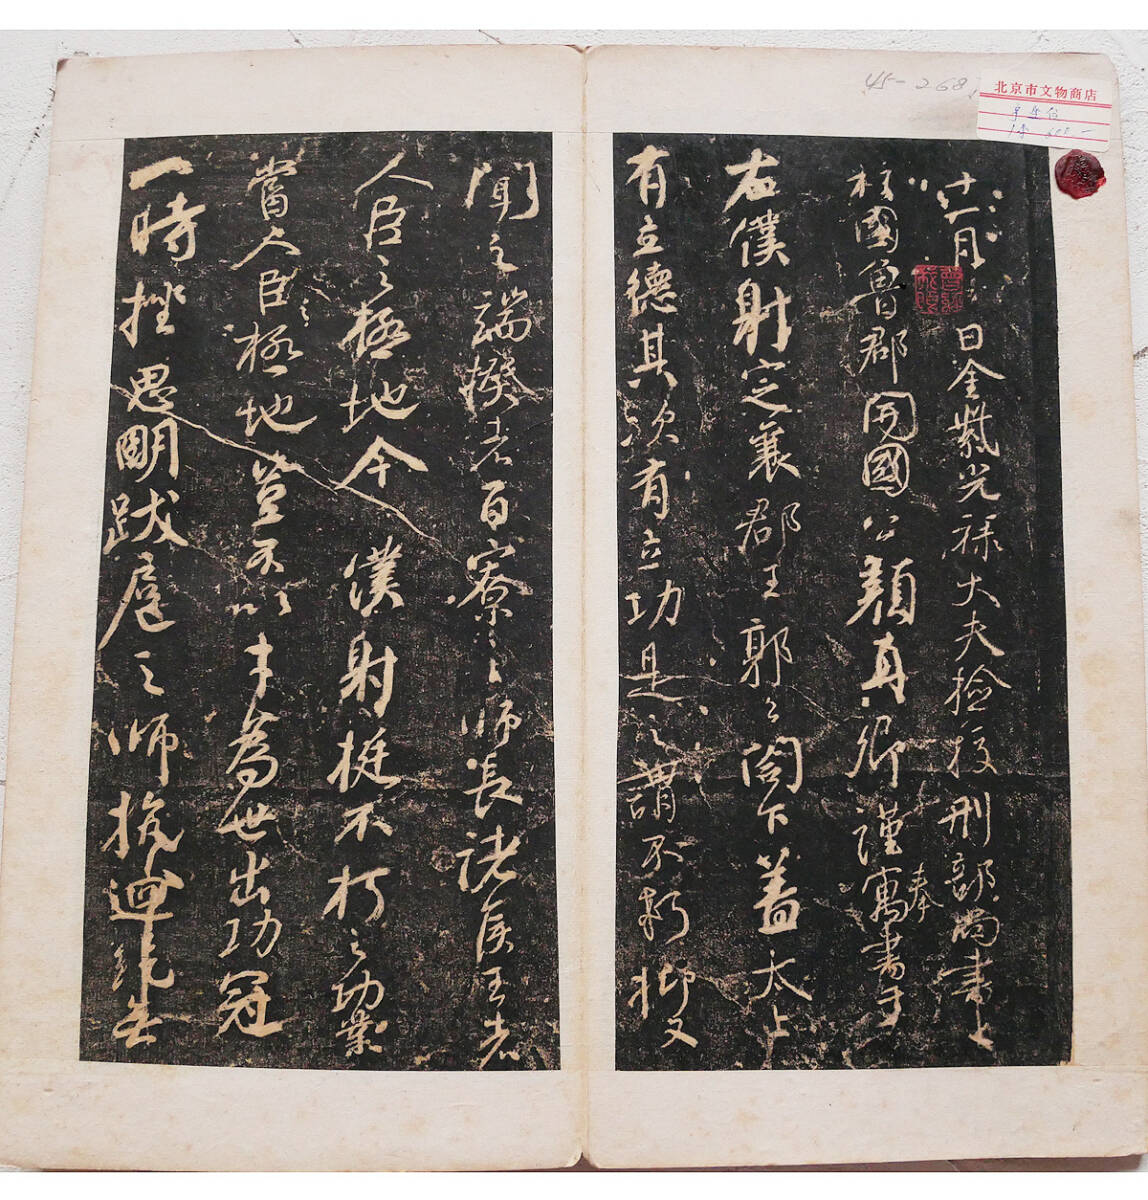 45-268
北京市文物商店
十一月 日金紫光祿大夫檢校刑部尚書上
柱國魯郡開國公顏真卿謹奉寓書于
右僕射定襄郡王郭公閣下蓋太上
有立德其次有立功是之謂不朽抑又
聞之端揆者百寮之師長諸侯王者
人臣之極地今僕射挺不朽之功業
當人臣之極地豈不以才為世出功冠
一時挫思明跋扈之師抗迴紇無